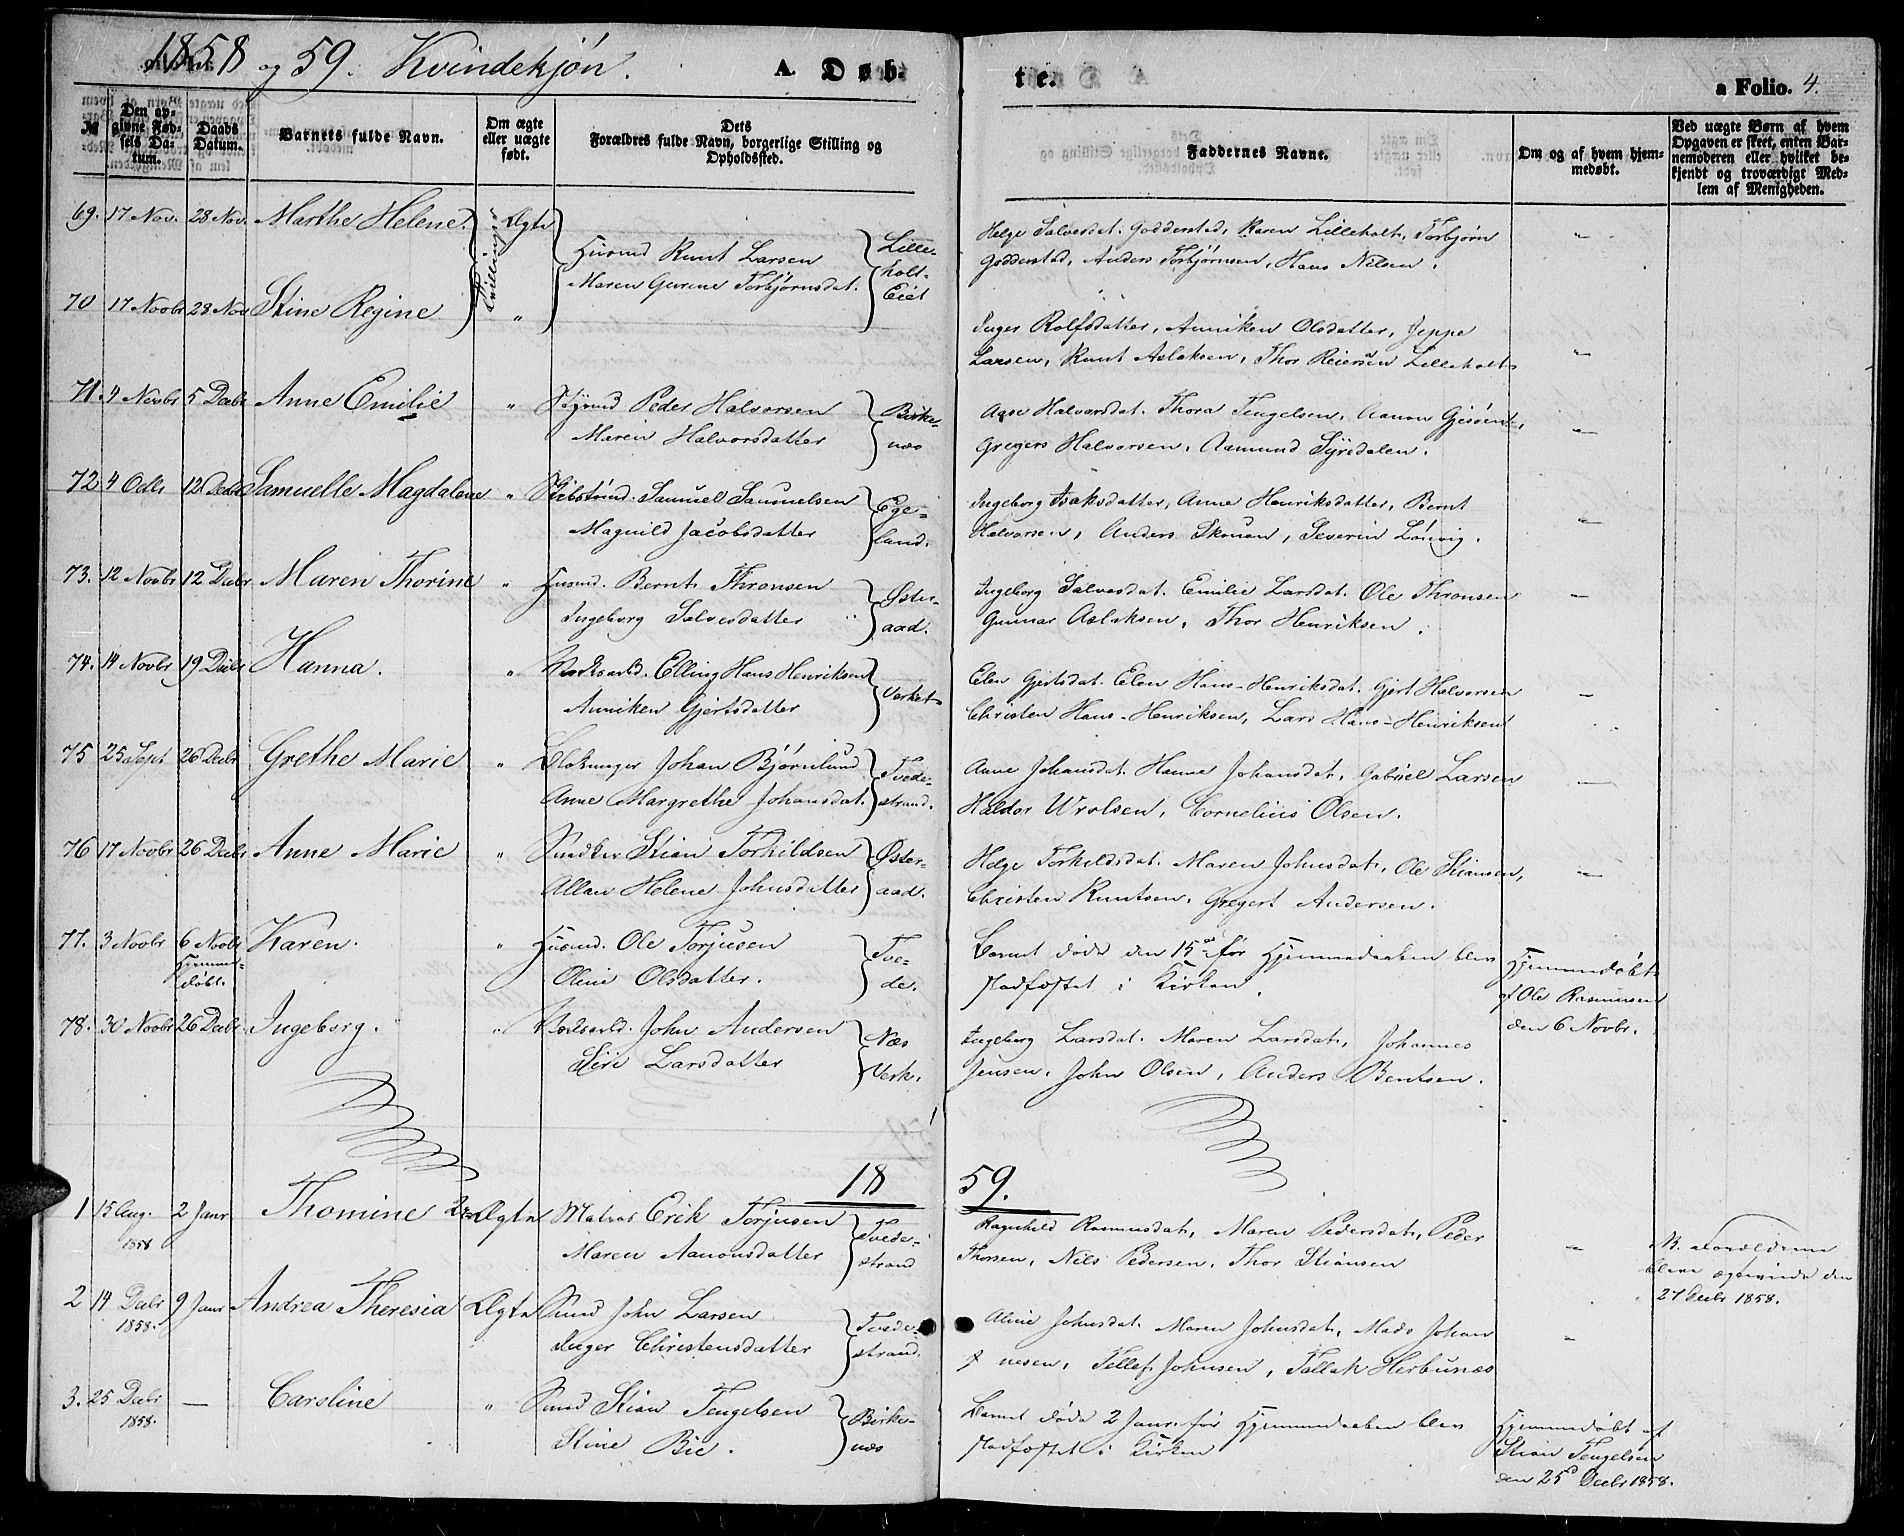 1858 og 59. Kvindekjøn.
A. Døb-
te.
a Folio. 4.
№
Den op-
givne Fød-
sels Da-
tum.
Daabs
Datum.
Barnets fulde Navn.
Om ægte
eller uægte
født.
Dets
Forældres fulde Navn, borgerlige Stilling og
Opholdsted.
Faddernes Navne.
Om og af hvem hjem-
medøbt.
Ved uægte Børn af hvem
Opgaven er skeet, enten Bar-
nemoderen eller hvilket be-
kjendt og troværdigt Med-
lem af Menigheden.
69. 17 Nov. 28 Nov. Marthe Helene. Tvillinger Ægte
Husmd Knut Larsen
Maren Gurine Torbjørnsdat.
Lille-
holt-
Eiet
Helge Salvesdat. Godderstad, Karen Lilleholt, Torbjørn
Godderstad, Anders Torbjørnsen, Hans Nilsen.
70 17 Novbr 28 Nov Stine Regine "
Inger Rolfsdatter, Anniken Olsdatter, Jeppe
Larsen, Knut Aslaksen, Thor Reiersen Lilleholt
71. 4 Novbr 5 Decbr Anne Emilie " Peder Halvorsen
Maren Halvorsdatter
Birke-
næs
Aase Halvorsdat. Thora Tengelsen, Aanon
Gregers Halvorsen, Aamund Syredalen.
72 4 Octbr 12 Decbr Samuelle Magdalene " Samuel Samuelsen
Magnild Jacobsdatter
Ege-
land.
Ingeborg Isaksdatter, Anne Henriksdatter, Bernt
Halvorsen, Anders Skouen, Severin
73. 12 Novbr 12 Decbr Maren Thorine " Husmd. Bernt Thronsen
Ingeborg Salvesdatter
Øster-
aad.
Ingeborg Salvesdat. Emilie Larsdat. Ole Thronsen
Gunnar Aslaksen, Thor Henriksen.
74. 14 Novbr 19 Decbr Hanna. " Elling Hans Henriksen
Anniken Gjertsdatter
Verket
Elen Gjertsdat. Elen Hans-Henriksdat. Gjert Halvorsen
Christen Hans-Henriksen, Lars Hans-Henriksen
75 25 Sept 26 Decbr Grethe Marie " Johan Bjørnlund
Anne Margrethe Johansdat.
Tvede-
strand.
Anne Johansdat. Hanne Johansdat, Gabriel Larsen
Haldor Wrolsen, Cornelius Olsen.
76 17 Novbr 26 Decbr Anne Marie " Snedker Stian Torkildsen
Allan Helene Johnsdatter
Øster-
aad.
Helge Torkildsdat. Maren Johnsdat, Ole Stiansen,
Christen Knutsen, Gregert Andersen.
77. 3 Novbr 6 Novbr Karen. " Husmd. Ole Torjusen
Hjemme-
døbt.
Oline Olsdatter.
Tve-
de.
Barnet døde den 15de før Hjemmedaaben blev
stadfæstet i Kirken.
Hjemmedøbt
af Ole Rasmussen
den 6 Novbr.
78. 30 Novbr 26 Decbr Ingeborg. " John Andersen
Siri Larsdatter
Næs
Verk.
Ingeborg Larsdat. Maren Larsdat, Johannes
Jensen, John Olsen, Anders Bentsen.
18 59.
1 15 Aug. 1858 2 Janr Thomine Ægte Matros Erik Torjusen
Maren Aanonsdatter
Tvede-
strand
Ragnhild Rasmusdat, Maren Pedersdat, Peder
Thorsen, Nils Pedersen, Thor Stiansen
NB. Forældrene
bleve ægteviede den
27 Decbr 1858.
2 14 Decbr 1858. 9 Janr Andrea Theresia Ægte Smed John Larsen
Inger Christensdatter
Tvede-
strand.
Aline Johnsdat. Maren Johnsdat, Mads Johan
nesen, Tellef Johnsen, Tallak Herbunæs
3. 25 Decbr 1858. — Caroline " Smed Stian Tengelsen
Stine Bie.
Birke-
næs
Barnet døde 2 Janr. før Hjemmedaaben blev
stadfæstet i Kirken
Hjemmedøbt af
Stian Tengelsen
den 25d Decbr 1858.